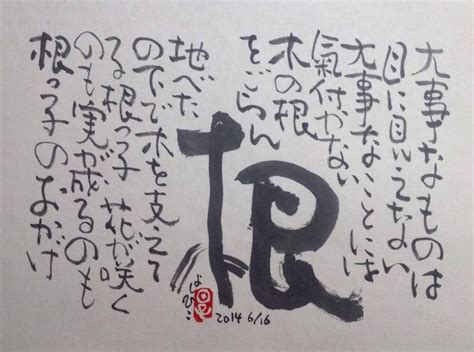 大事なものは
目に見えない
大事なことには
氣付かない
木の根
をごらん
根
地べた
の下で木を支えて
る根っ子 花が咲く
のも実が成るのも
根っ子のおかげ
2014 6/16